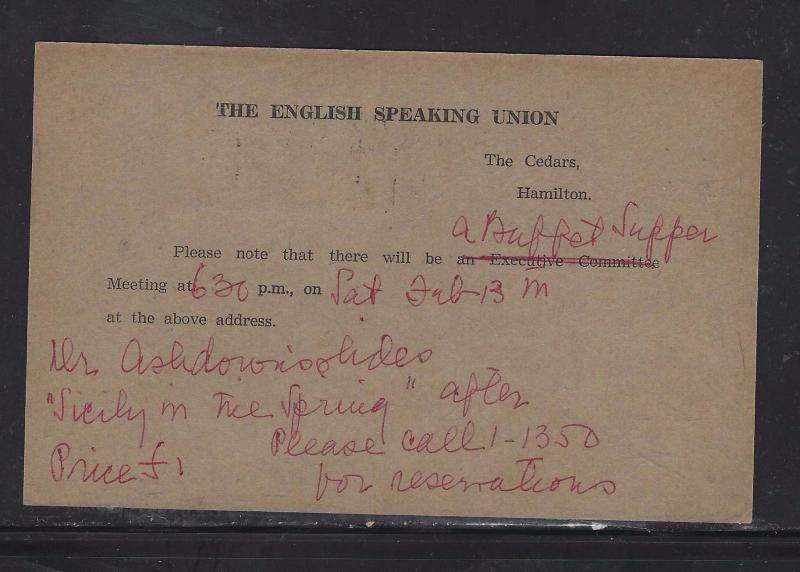 THE ENGLISH SPEAKING UNION
The Cedars,
Hamilton.
a Buffet Supper
Please note that there will be an Executive Committee
Meeting at 630 p.m., on Sat Feb 13 th
at the above address.
Dr. Ashdown's slides
"Sicily in the Spring" after
Please call 1-1350
Price £1
for reservations